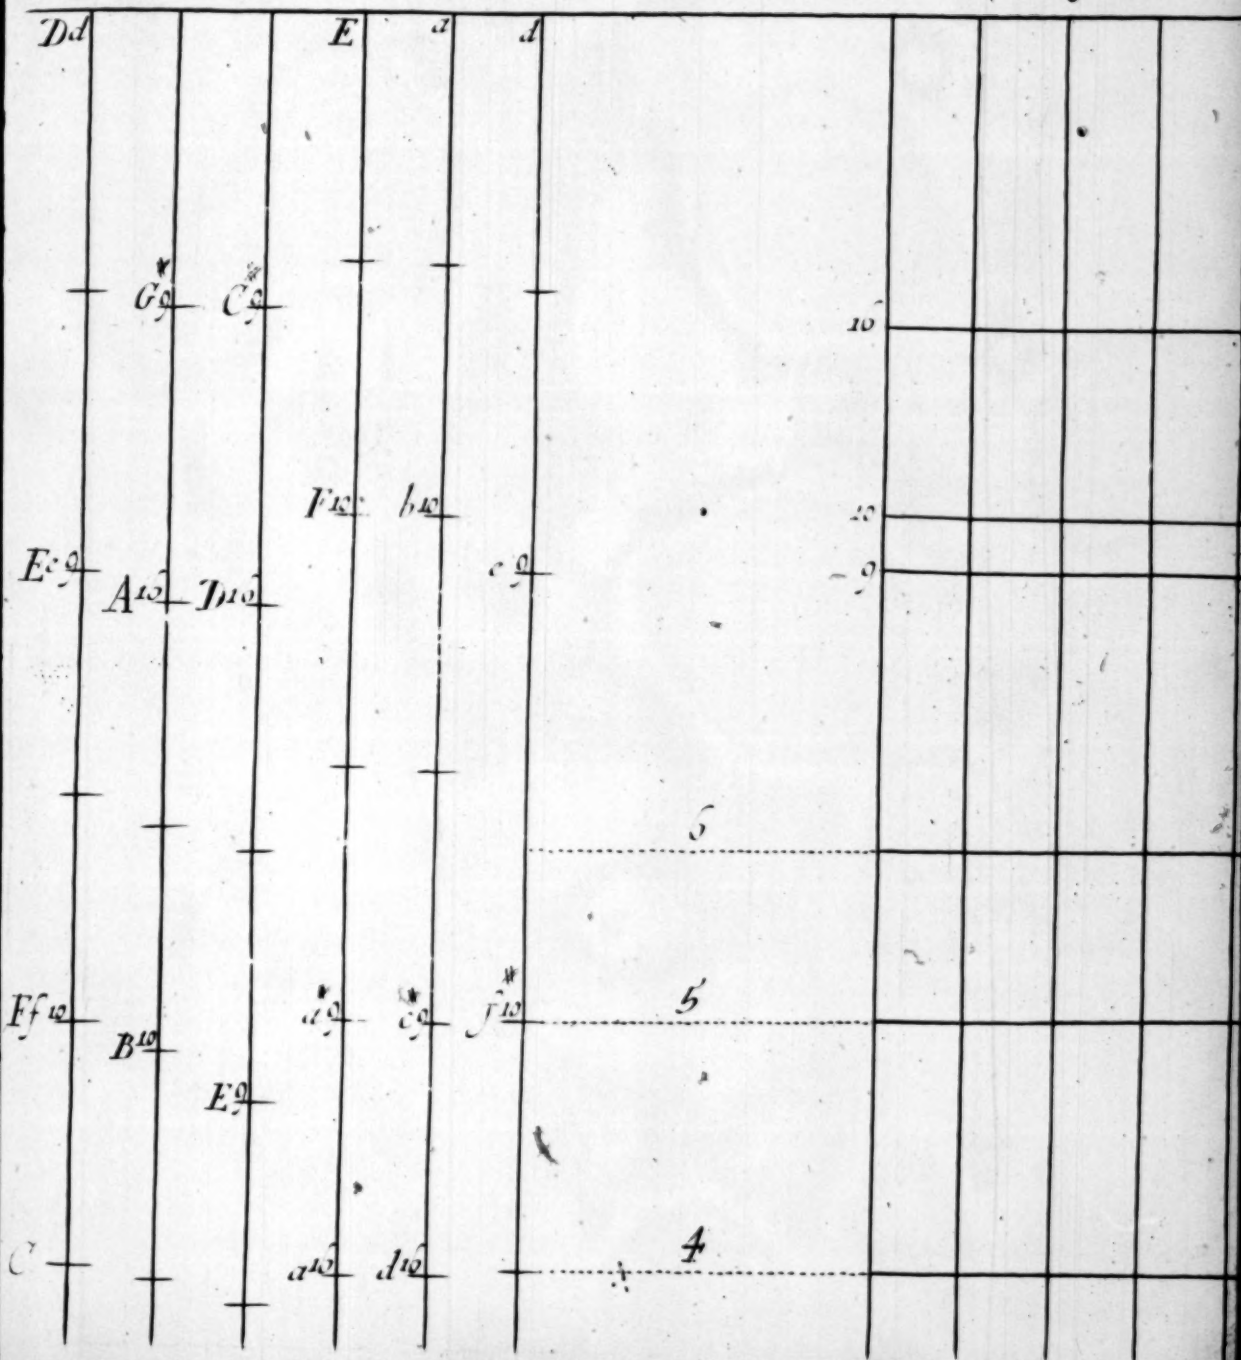 Dd E d d
* *
G9 C9
16
F10 b10 10
Ec9 c9 9
A16 D16
6
* * *
Ff10 a9 c9 f10 5
B10
E9
C a16 d16 4